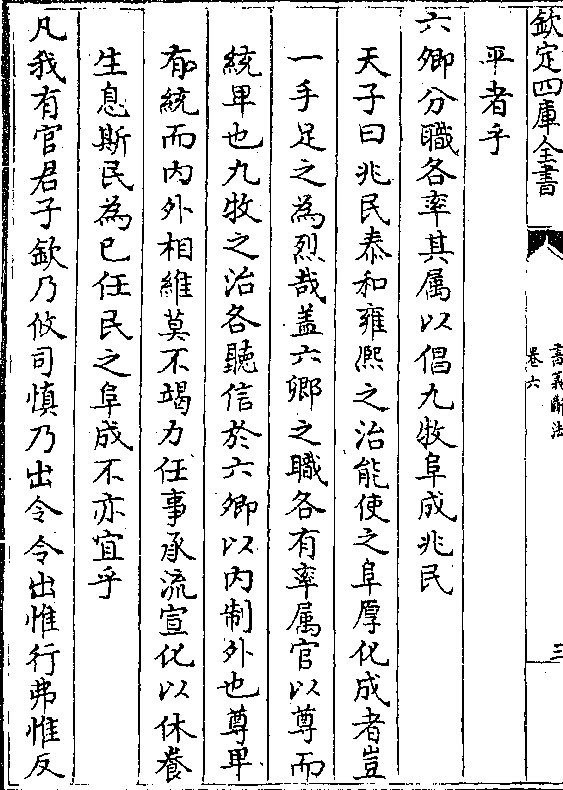 欽定四庫全書
書義斷法
卷六
三
平者乎
六卿分職各率其属以倡九牧阜成兆民
天子曰兆民泰和雍熈之治能使之阜厚化成者豈
一手足之為烈哉盖六卿之職各有率属官以尊而
統卑也九牧之治各聽信於六卿以内制外也尊卑
有統而内外相維莫不竭力任事承流宣化以休養
生息斯民為已任民之阜成不亦宜乎
凡我有官君子欽乃攸司慎乃出令令出惟行弗惟反